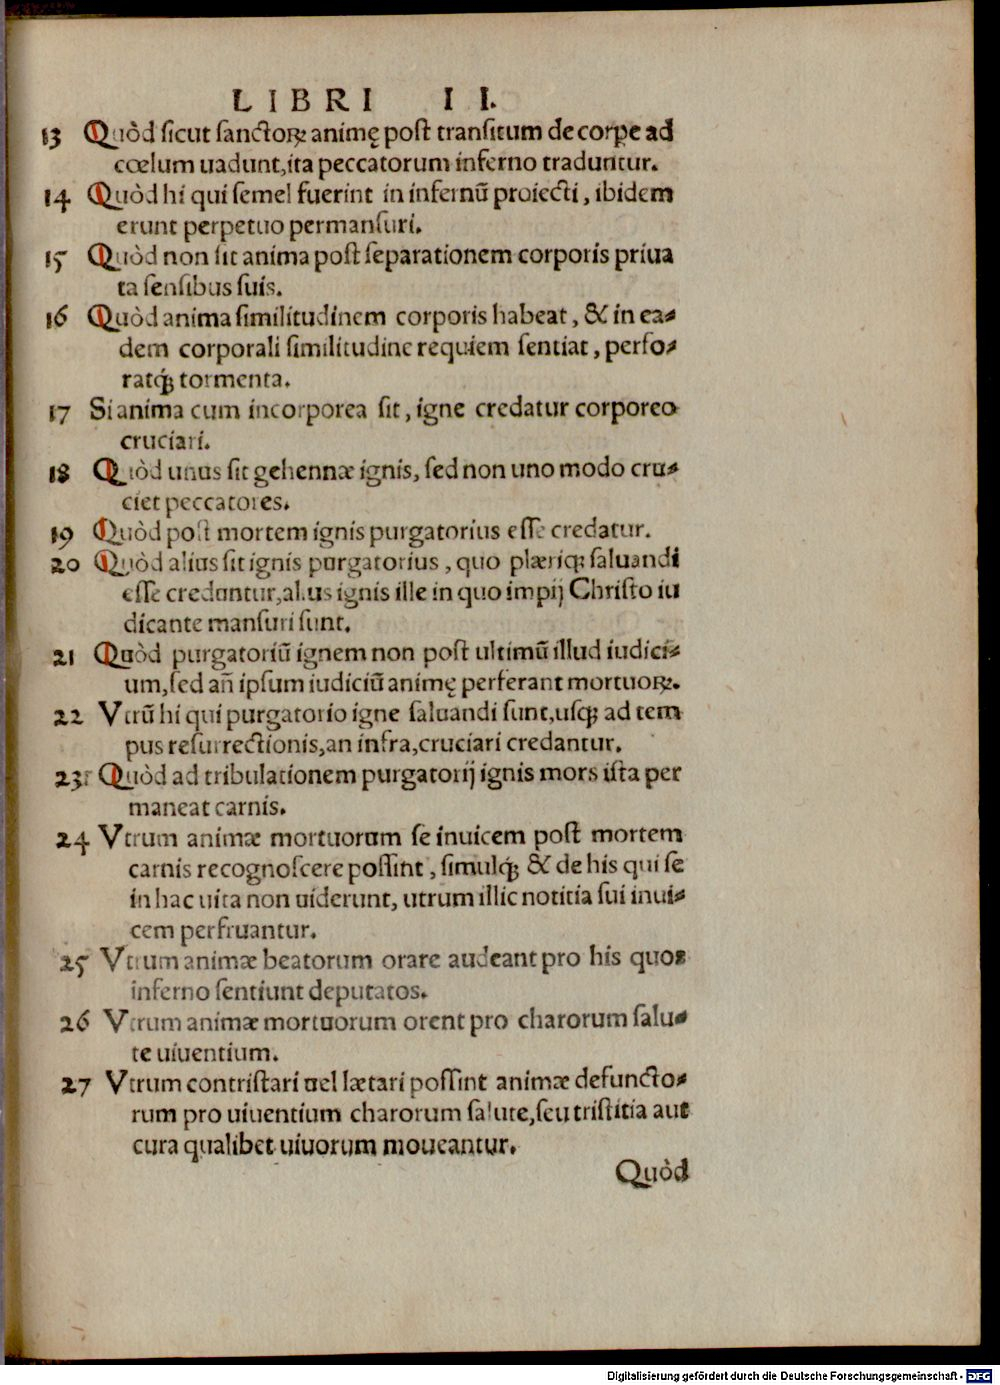 LIBRI II.
13 Quòd ſicut ſanctoꝝ animę poſt tranſitum de corpe ad
cœlum uadunt,ita peccatorum inferno traduntur.
14 Quòd hi qui ſemel fuerint in infernũ proiecti, ibidem
erunt perpetuo permanſuri.
15 Quòd non ſit anima poſt ſeparationem corporis priua
ta ſenſibus ſuis.
16 Quòd anima ſimilitudinem corporis habeat, & in ea-
dem corporali ſimilitudine requiem ſentiat, perfo-
ratq́; tormenta.
17 Si anima cum incorporea ſit, igne credatur corporeo
cruciari.
18 Quòd unus ſit gehennæ ignis, ſed non uno modo cru-
ciet peccatores.
19 Quòd poſt mortem ignis purgatorius eſſe credatur.
20 Quòd alius ſit ignis purgatorius, quo plæriq; ſaluandi
eſſe creduntur,alius ignis ille in quo impij Chriſto iu
dicante manſuri ſunt.
21 Quòd purgatoriũ ignem non poſt ultimũ illud iudici-
um,ſed añ ipſum iudiciũ animę perferant mortuoꝝ.
22 Vtrũ hi qui purgatorio igne ſaluandi ſunt,uſq; ad tem
pus reſurrectionis,an infra,cruciari credantur.
23 Quòd ad tribulationem purgatorij ignis mors iſta per
maneat carnis.
24 Vtrum animæ mortuorum ſe inuicem poſt mortem
carnis recognoſcere poſſint, ſimulq́; & de his qui ſe
in hac uita non uiderunt, utrum illic notitia ſui inui-
cem perfruantur.
25 Vtrum animæ beatorum orare audeant pro his quos
inferno ſentiunt deputatos.
26 Vtrum animæ mortuorum orent pro charorum ſalu-
te uiuentium.
27 Vtrum contriſtari uel lætari poſſint animæ defuncto-
rum pro uiuentium charorum ſalute,ſeu triſtitia aut
cura qualibet uiuorum moueantur.
Quòd
Digitalisierung gefördert durch die Deutsche Forschungsgemeinschaft - DFG